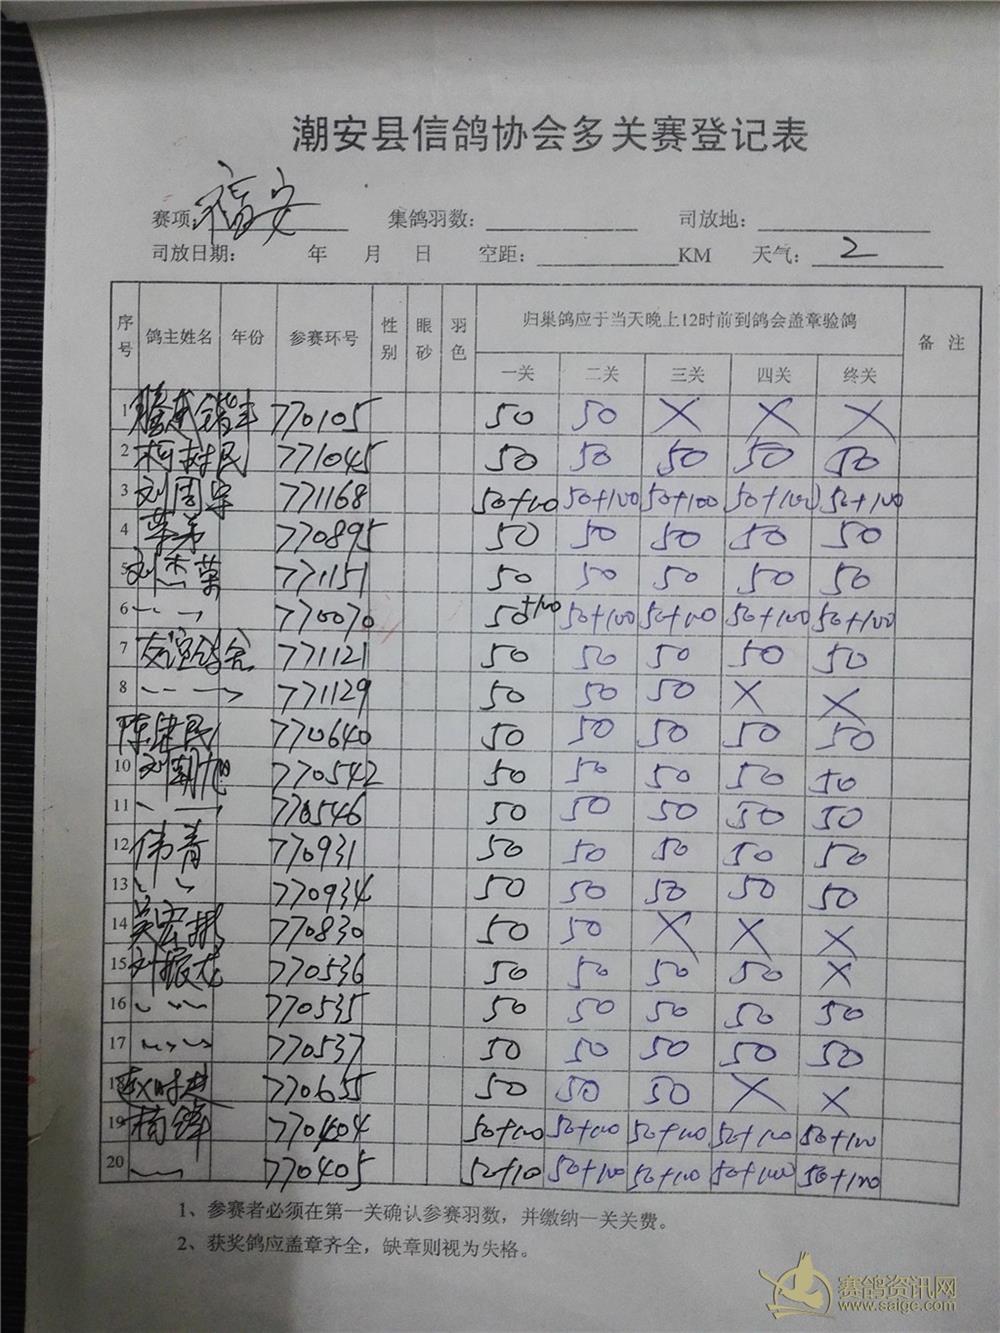 潮安县信鸽协会多关赛登记表
赛项: 福安 集鸽羽数: 司放地:
司放日期: 年 月 日 空距: KM 天气: 2
序号 鸽主姓名 年份 参赛环号 性别 眼砂 羽色 归巢鸽应于当天晚上12时前到鸽会盖章验鸽 备 注
一关 二关 三关 四关 终关
1 770105 50 50 X X X
2 柯树民 771045 50 50 50 50 50
3 刘周宇 771168 50+100 50+100 50+100 50+100 50+100
4 荣弟 770895 50 50 50 50 50
5 刘杰荣 771151 50 50 50 50 50
6 770070 50+100 50+100 50+100 50+100 50+100
7 友谊鸽舍 771121 50 50 50 50 50
8 771129 50 50 50 X X
陈建民 770640 50 50 50 50 50
10 刘朝旭 770542 50 50 50 50 50
11 770546 50 50 50 50 50
12 伟青 770931 50 50 50 50 50
13 770934 50 50 50 50 50
14 吴宏彬 770830 50 50 X X X
15 叶振龙 770536 50 50 50 50 X
16 770535 50 50 50 50 50
17 770537 50 50 50 50 50
18 770655 50 50 50 X X
19 杨锋 770404 50+100 50+100 50+100 50+100 50+100
20 770405 50+10 50+100 50+100 50+100 50+100
1、参赛者必须在第一关确认参赛羽数，并缴纳一关关费。
2、获奖鸽应盖章齐全，缺章则视为失格。
赛鸽资讯网
www.saige.com